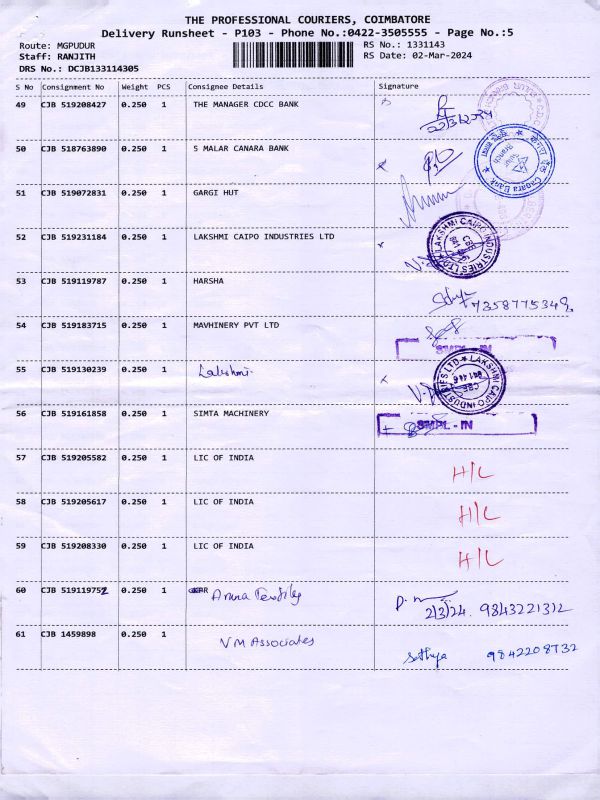 THE PROFESSIONAL COURIERS, COIMBATORE
Delivery Runsheet - P103 - Phone No.:0422-3505555 - Page No.:5
Route: MGPUDUR RS No.: 1331143
Staff: RANJITH RS Date: 02-Mar-2024
DRS No.: DCJB133114305
S No Consignment No Weight PCS Consignee Details Signature
49 CJB 519208427 0.250 1 THE MANAGER CDCC BANK
50 CJB 518763890 0.250 1 S MALAR CANARA BANK
Canara Bank
51 CJB 519072831 0.250 1 GARGI HUT
52 CJB 519231184 0.250 1 LAKSHMI CAIPO INDUSTRIES LTD
LAKSHMI CAIPO INDUSTRIES LTD
53 CJB 519119787 0.250 1 HARSHA
54 CJB 519183715 0.250 1 MAVHINERY PVT LTD
SMPL - IN
55 CJB 519130239 0.250 1 Lakshmi
LAKSHMI CAIPO INDUSTRIES LTD
56 CJB 519161858 0.250 1 SIMTA MACHINERY
SMPL - IN
57 CJB 519205582 0.250 1 LIC OF INDIA H/L
58 CJB 519205617 0.250 1 LIC OF INDIA H/L
59 CJB 519208330 0.250 1 LIC OF INDIA H/L
60 CJB 519119752 0.250 1
2/3/24. 9843221312
61 CJB 1459898 0.250 1 VM Associates Sathya 9842208732